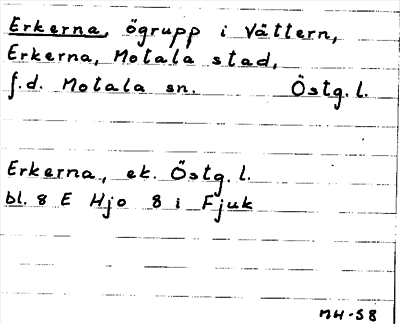 Erkerna, ögrupp i Vättern,
Erkerna, Motala stad,
f.d. Motala sn. Östg.l.
Erkerna, ek. Östg.l.
bl. 8 E Hjo 8 i Fjuk
MH-58